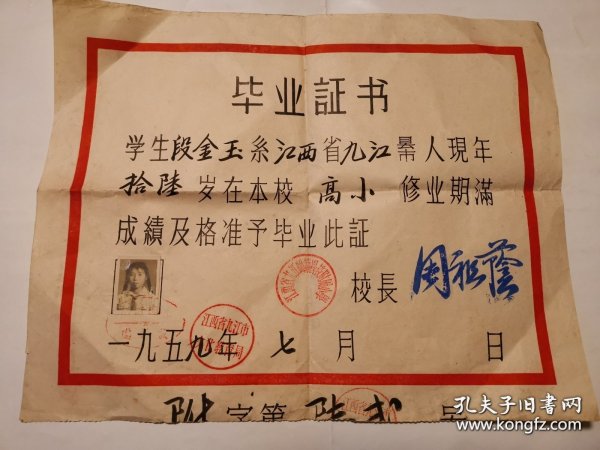 毕业証书
学生段金玉系江西省九江县人現年
拾陸岁在本校高小修业期滿
成績及格准予毕业此証
校長 周祖蔭
江西省九江市
一九五九年七月 日
附字第陆式号
孔夫子旧書网
www.kongfz.com